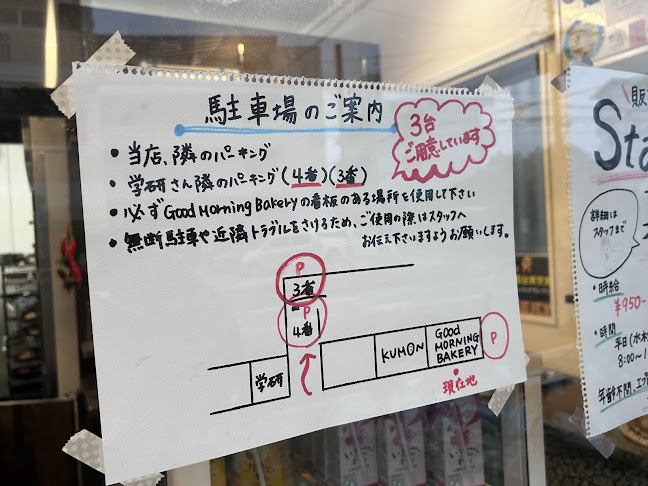 駐車場のご案内
3台
ご用意しています
• 当店、隣のパーキング
• 学研さん隣のパーキング(4番)(3番)
• 必ずGood Morning Bakeryの看板のある場所を使用して下さい
• 無断駐車や近隣トラブルをさけるため、ご使用の際はスタッフへ
お伝え下さいますようお願いします。
P
3番
P
4番
学研
KUMON
GOOD
MORNING
BAKERY
P
現在地
販
Sta
詳細は
スタッフまで
• 時給
¥950-
• 時間
平日(水木
8:00~1